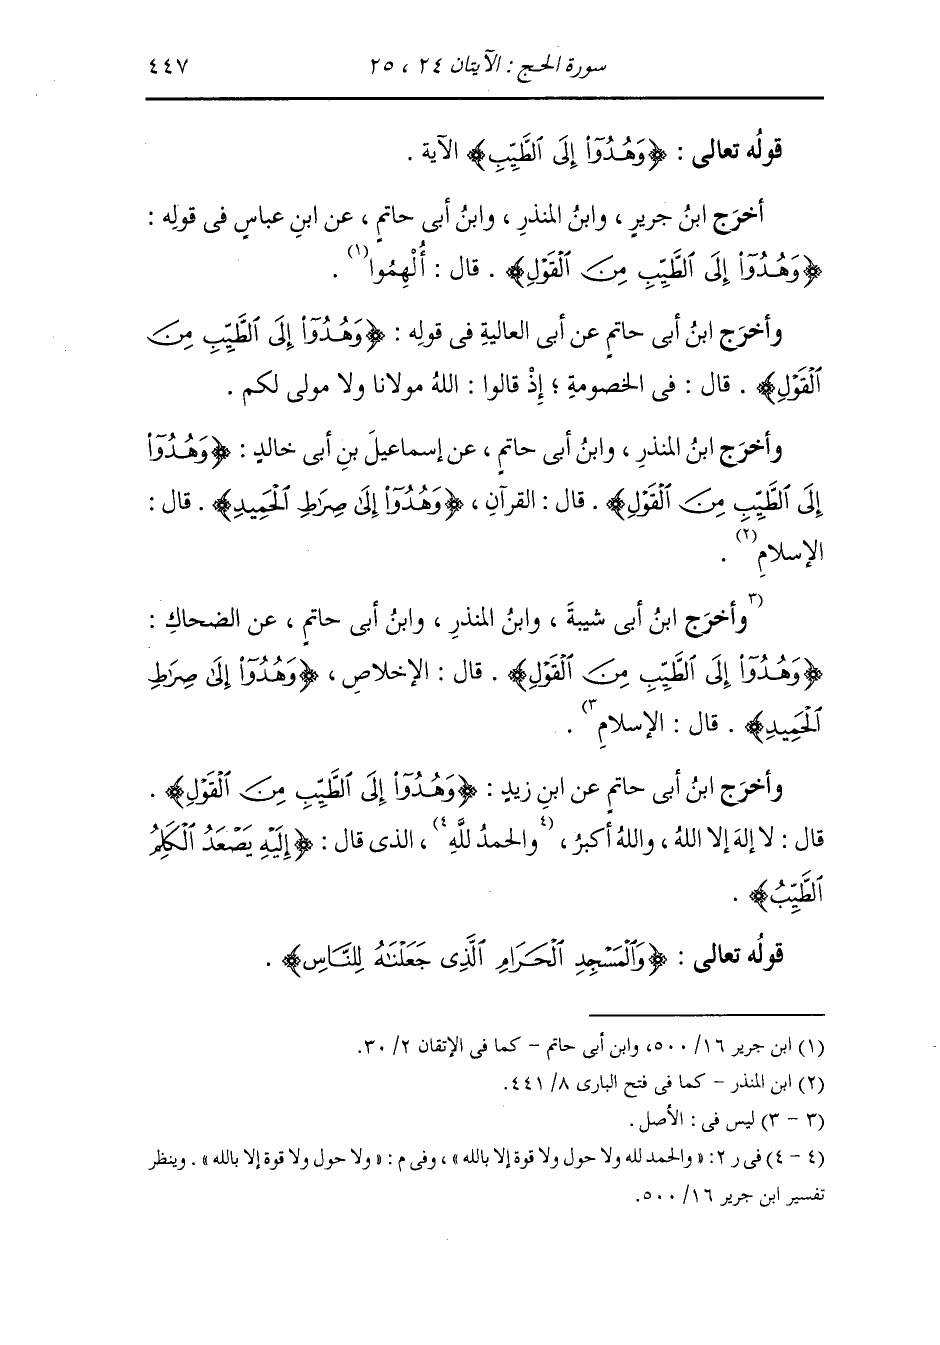 سورة الحج : الآيتان ٢٤ ، ٢٥ ٤٤٧
قولُه تعالى : ﴿وَهُدُوٓا۟ إِلَى ٱلطَّيِّبِ﴾ الآية .
أخرَج ابنُ جريرٍ ، وابنُ المنذرِ ، وابنُ أبى حاتمٍ ، عن ابنِ عباسٍ فى قولِه :
﴿وَهُدُوٓا۟ إِلَى ٱلطَّيِّبِ مِنَ ٱلْقَوْلِ﴾ . قال : أُلْهِمُوا(١) .
وأخرَج ابنُ أبى حاتمٍ عن أبى العاليةِ فى قوله : ﴿وَهُدُوٓا۟ إِلَى ٱلطَّيِّبِ مِنَ
ٱلْقَوْلِ﴾ . قال : فى الخصومةِ ؛ إذْ قالوا : اللهُ مولانا ولا مولى لكم .
وأخرَج ابنُ المنذرِ ، وابنُ أبى حاتمٍ ، عن إسماعيلَ بنِ أبى خالدٍ : ﴿وَهُدُوٓا۟
إِلَى ٱلطَّيِّبِ مِنَ ٱلْقَوْلِ﴾ . قال : القرآنِ ، ﴿وَهُدُوٓا۟ إِلَىٰ صِرَٰطِ ٱلْحَمِيدِ﴾ . قال :
الإسلامِ(٢) .
(٣وأخرَج ابنُ أبى شيبةَ ، وابنُ المنذرِ ، وابنُ أبى حاتمٍ ، عن الضحاكِ :
﴿وَهُدُوٓا۟ إِلَى ٱلطَّيِّبِ مِنَ ٱلْقَوْلِ﴾ . قال : الإخلاصِ ، ﴿وَهُدُوٓا۟ إِلَىٰ صِرَٰطِ
ٱلْحَمِيدِ﴾ . قال : الإسلامِ٣) .
وأخرَج ابنُ أبى حاتمٍ عن ابنِ زيدٍ : ﴿وَهُدُوٓا۟ إِلَى ٱلطَّيِّبِ مِنَ ٱلْقَوْلِ﴾ .
قال : لا إلهَ إلا اللهُ ، واللهُ أكبرُ ، (٤والحمدُ للَّهِ٤) ، الذى قال : ﴿إِلَيْهِ يَصْعَدُ ٱلْكَلِمُ
ٱلطَّيِّبُ﴾ .
قولُه تعالى : ﴿وَٱلْمَسْجِدِ ٱلْحَرَامِ ٱلَّذِى جَعَلْنَٰهُ لِلنَّاسِ﴾ .
(١) ابن جرير ١٦/ ٥٠٠، وابن أبى حاتم - كما فى الإتقان ٢/ ٣٠.
(٢) ابن المنذر - كما فى فتح البارى ٨/ ٤٤١.
(٣ - ٣) ليس فى : الأصل .
(٤ - ٤) فى ر ٢: « والحمد لله ولا حول ولا قوة إلا بالله » ، وفى م : « ولا حول ولا قوة إلا بالله » . وينظر
تفسير ابن جرير ١٦/ ٥٠٠.